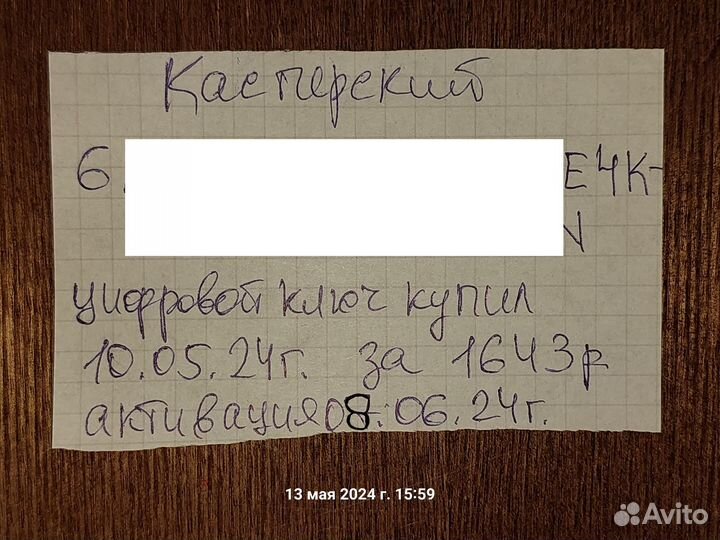 Касперский
6
Е4К-
N
цифровой ключ купил
10.05.24г. за 1643р
активация 08.06.24г.
13 мая 2024 г. 15:59
Avito